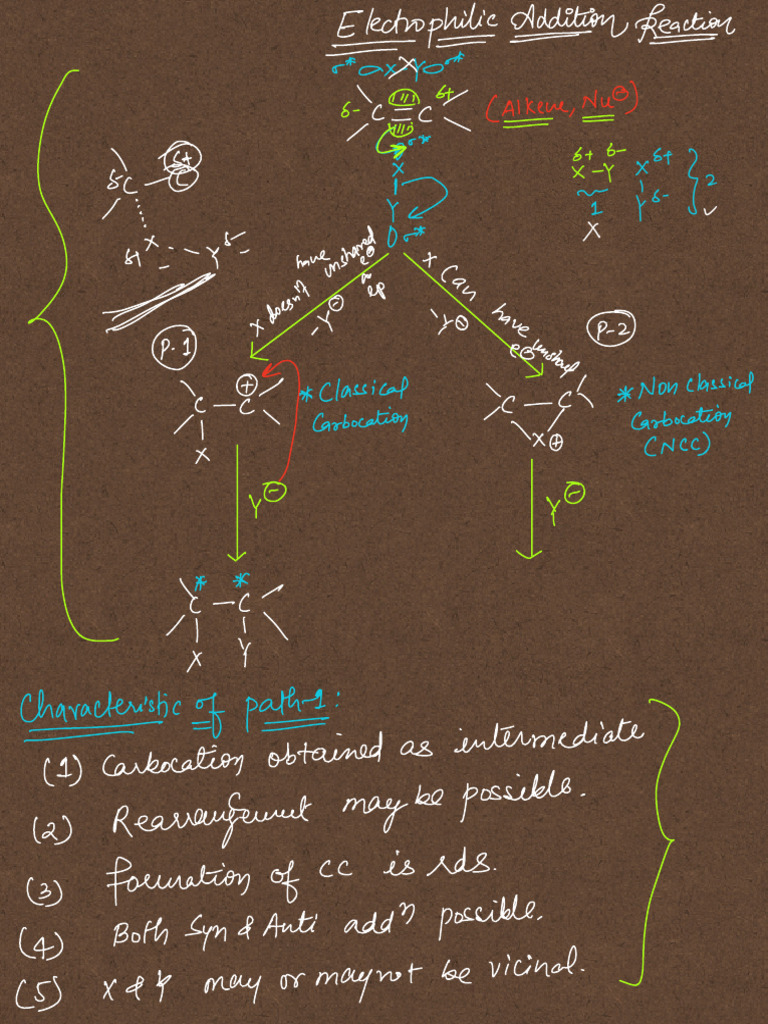 Electrophilic Addition Reaction
σ* X Y σ*
δ- C = C δ+ (Alkene, Nu⊖)
σ*
X
Y
σ*
δ+ δ-
X - Y
1
X
X δ+
Y δ-
2 ✓
δ+
δ- C - C
δ+ X Y δ-
X doesn't have unshared e⊖
ep
-Y⊖
X can have unshared e⊖
-Y⊖
P-1
P-2
C - C ⊕
X
* Classical
Carbocation
C - C
X ⊕
* Non Classical
Carbocation
(NCC)
Y⊖
Y⊖
* *
C - C
X Y
Characteristic of path-1:
(1) Carbocation obtained as intermediate
(2) Rearrangement may be possible.
(3) formation of CC is rds.
(4) Both Syn & Anti addⁿ possible.
(5) X & Y may or may not be vicinal.